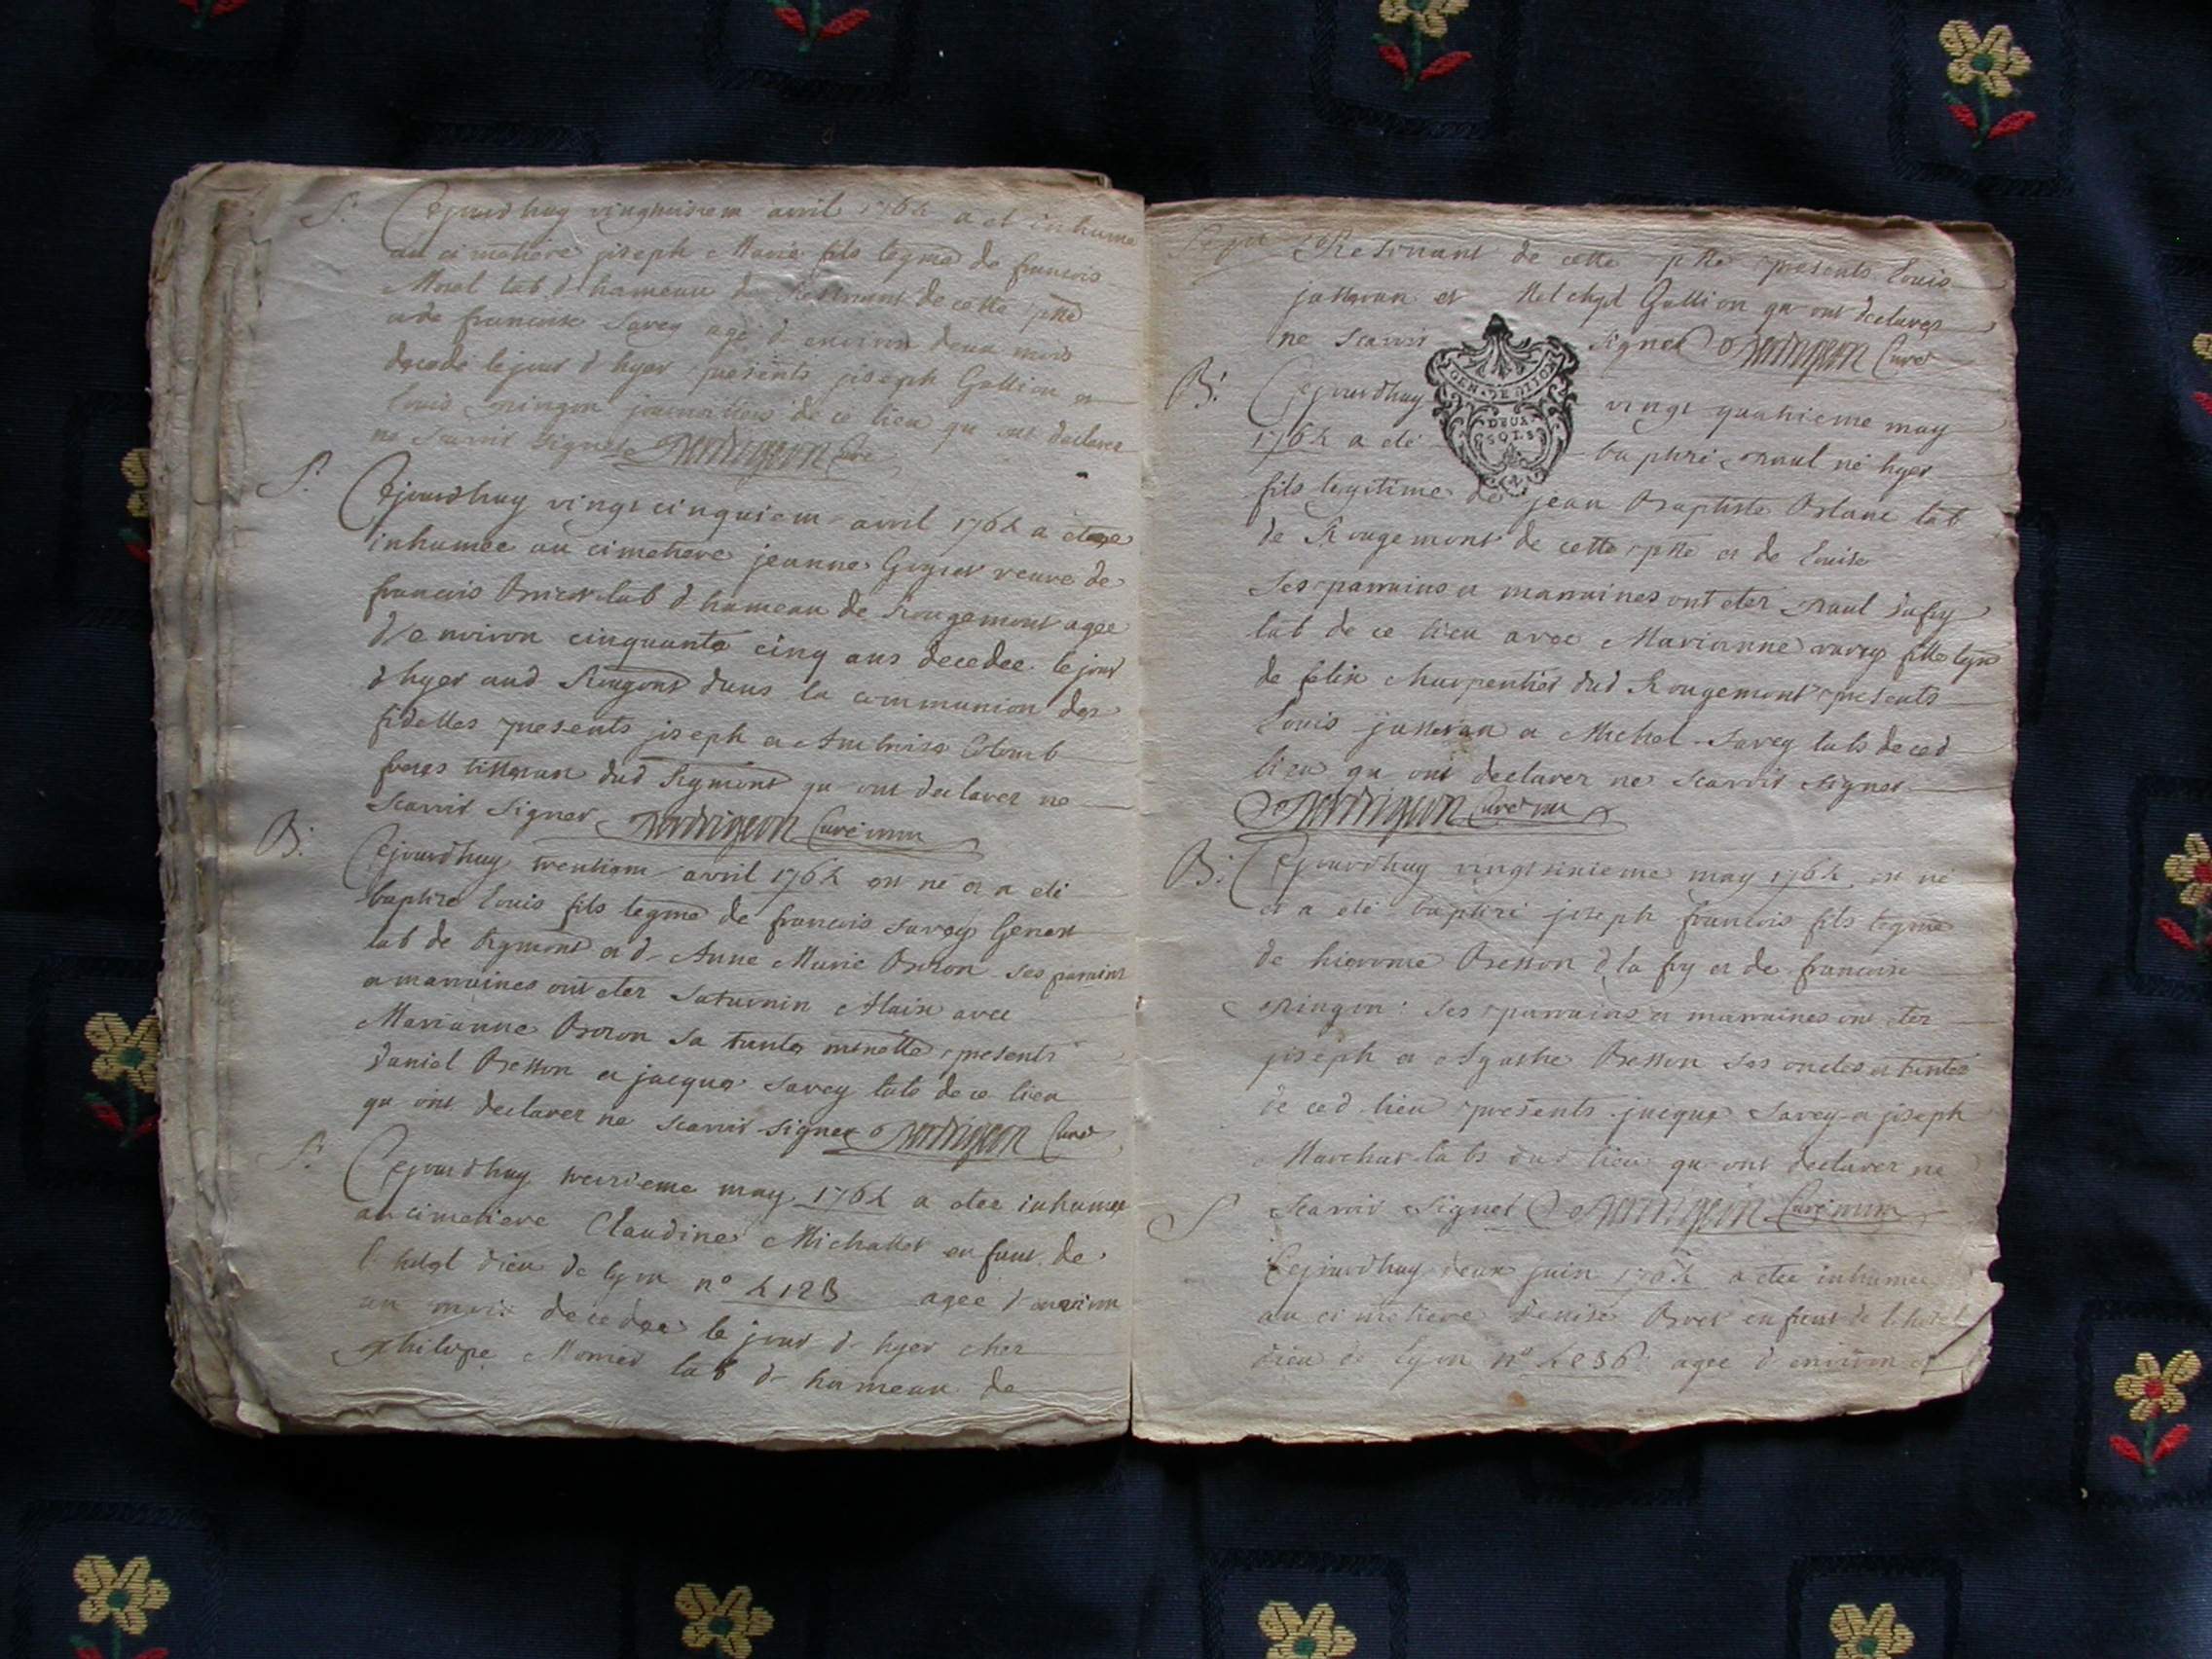 S. Cejourdhuy vinghuisiem avril 1764 a et inhume
au cimetiere joseph Marie fils legme de francois
Morel lab d hameau de de cette psse
a de francoise Savey agé d environ deux mois
decedé le jour d hyer presents joseph Gallion a
Louis pingon journaliers de ce lieu qu ont declarer
ne scavoir signer Curé
S. Cejourdhuy vingt cinquiem avril 1764 a etee
inhumee au cimetiere jeanne veuve de
francois lab d hameau de Rougemont agee
d'environ cinquante cinq ans decedee le jour
d hyer aud Rougmt dans la communion des
fidelles presents joseph a Ambroise Colomb
freres dud Rgmont qu ont declarer ne
scavoir signer Curé mm
B. Cejourdhuy trentiem avril 1764 est né et a eté
baptizé Louis fils legme de francois Savey
lab de Rgmont et d Anne Marie Bozon ses parains
a marraines ont eter Saturnin Alaix avec
Marianne Bozon sa tante presents
Daniel Besson a jacque Savey labs de ce lieu
qu ont declarer ne scavoir signer Curé
S. Cejourdhuy treizieme may 1764 a etee inhumee
au cimetiere Claudine Michallet enfant de
l hotel dieu de lyon n° 4123 agee d environ
un mois decedee le jour d hyer chez
philipe lab d hameau de
de cette psse presents Louis
et Melchyl Gallion qu ont declarer
ne scavoir signer Curé
GEN · DE DIJON
DEUX
SOLS
B. Cejourdhuy vingt quatrieme may
1764 a eté baptizé paul né hyer
fils legitime de jean Baptiste lab
de Rougemont de cette psse et de Louise
Ses parrains a marraines ont eter paul
lab de ce lieu avec Marianne fille legme
de felix charpentier dud Rougemont presents
Louis a Michel Savey labs de ced
lieu qu ont declarer ne scavoir signer
Curé mm
B. Cejourdhuy vingt sixieme may 1764 est né
et a eté baptizé joseph francois fils legme
de hierome Besson d la fry et de francoise
pingon: Ses parrains a marraines ont eter
joseph a Agathe Besson ses oncles et tantes
de ced lieu presents jacque Savey a joseph
labs dud lieu qu ont declarer ne
S scavoir signer Curé mm
Cejourdhuy deux juin 1764 a etee inhumee
au cimetiere Denise enfant de l hotel
dieu de Lyon n° agee d environ